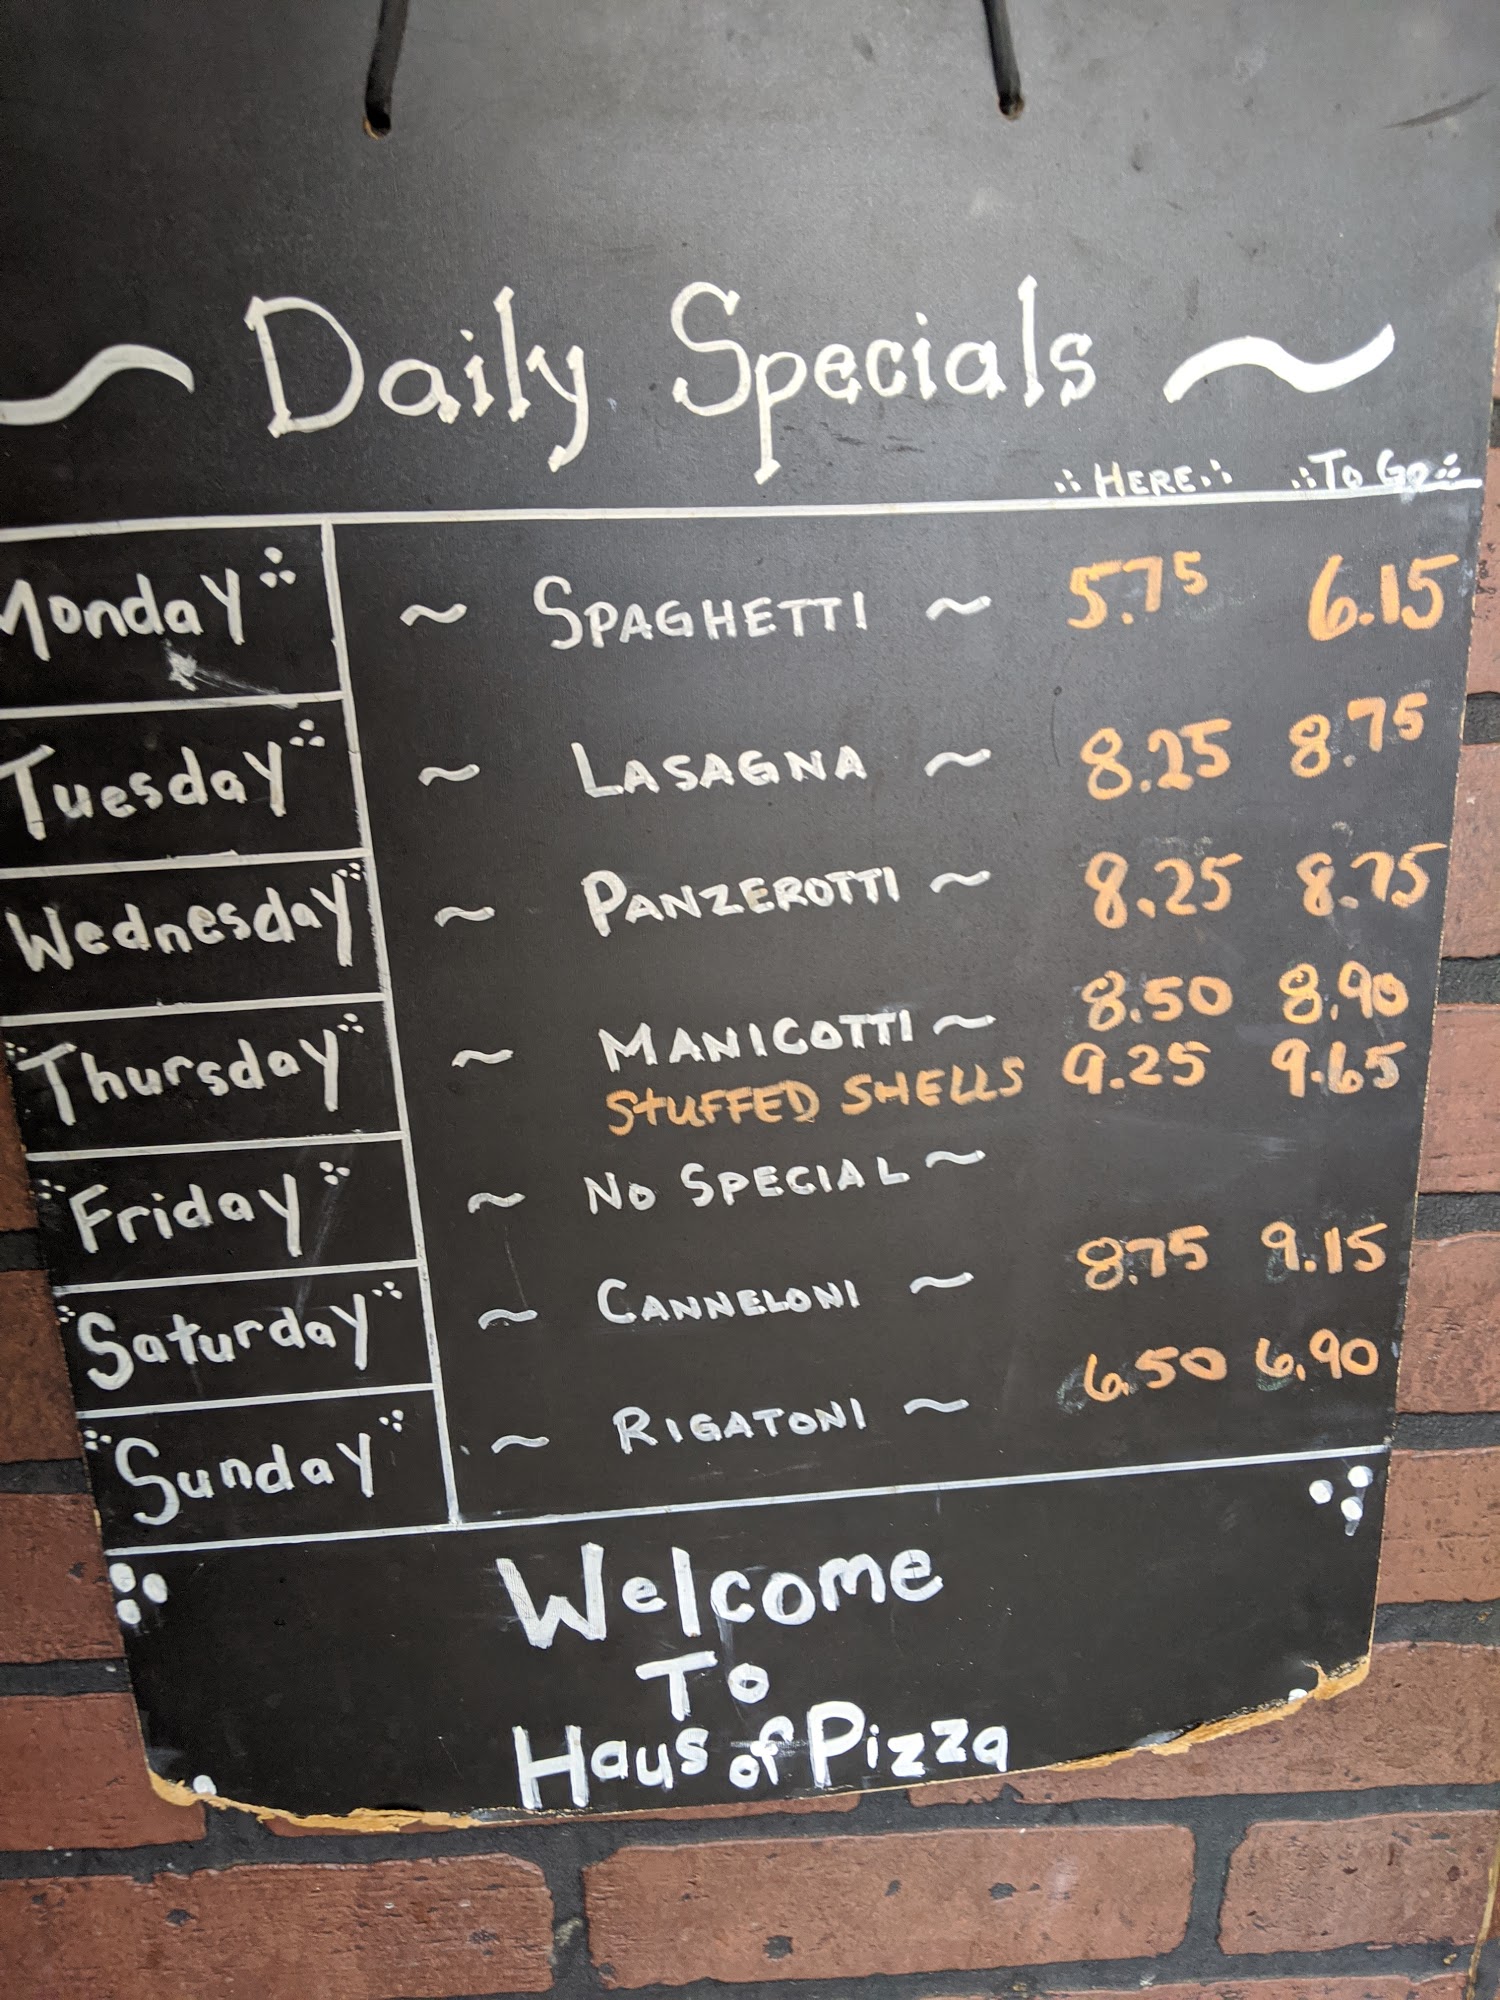 ~ Daily Specials ~
HERE To Go
Monday ~ SPAGHETTI ~ 5.75 6.15
Tuesday ~ LASAGNA ~ 8.25 8.75
Wednesday ~ PANZEROTTI ~ 8.25 8.75
Thursday ~ MANICOTTI ~ 8.50 8.90
STUFFED SHELLS 9.25 9.65
Friday ~ NO SPECIAL ~
Saturday ~ CANNELONI ~ 8.75 9.15
Sunday ~ RIGATONI ~ 6.50 6.90
Welcome
To
Haus of Pizza